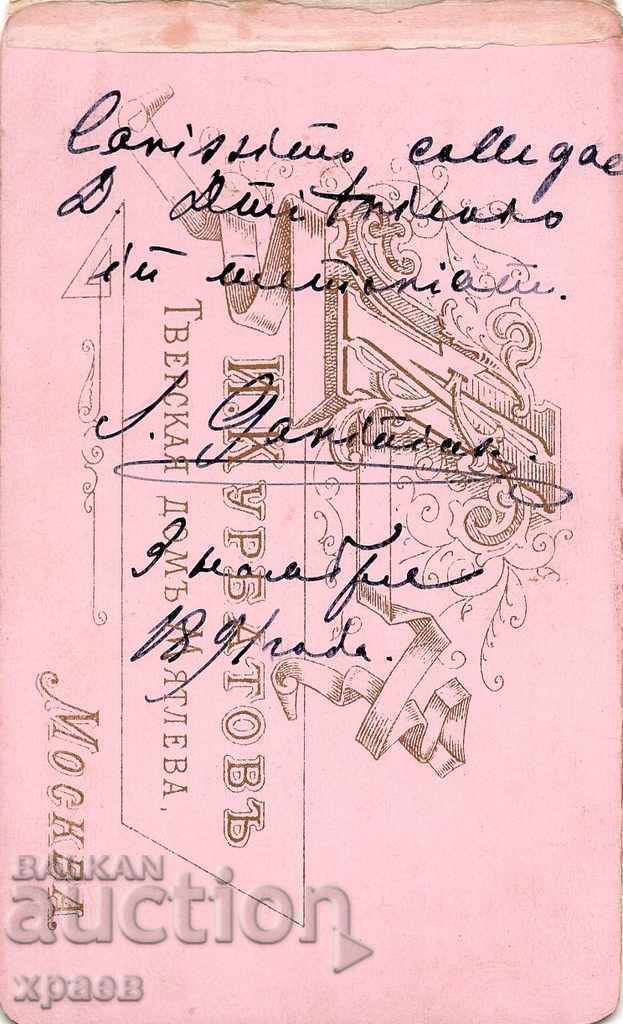 Carissimo collegae
D.
in memoriam.
9 ноября
1891 года.
И. КУРБАТОВЪ
ТВЕРСКАЯ ДОМЪ МЯТЛЕВА,
МОСКВА
BALKAN
auction
храев